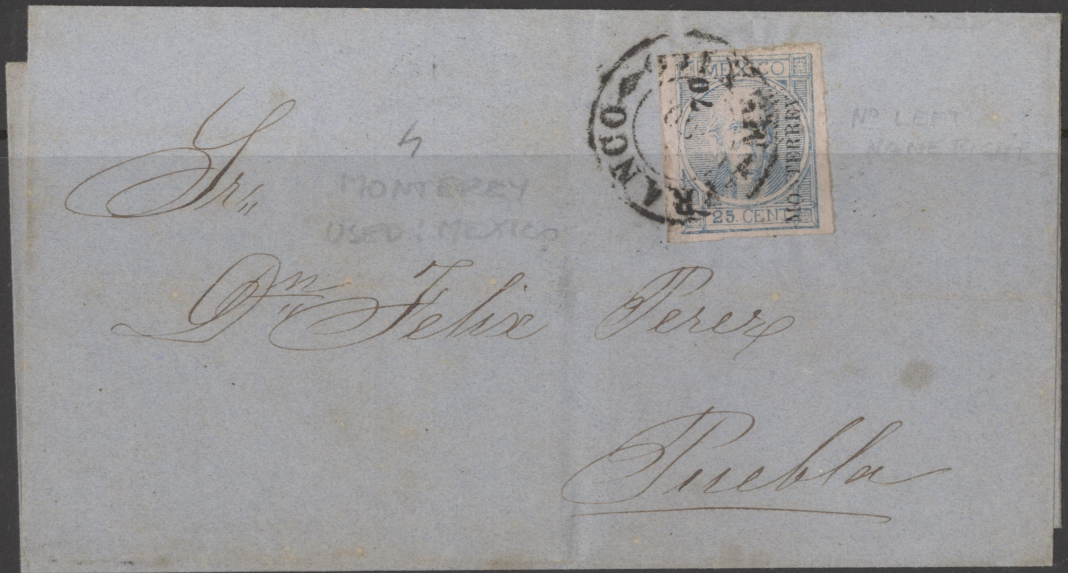 MEXICO
70
MONTERREY
25. CENT
FRANCO
Nº LEFT
NAME RIGHT
4
MONTEREY
USED. MEXICO
Sr.
Dn Felix Perez
Puebla